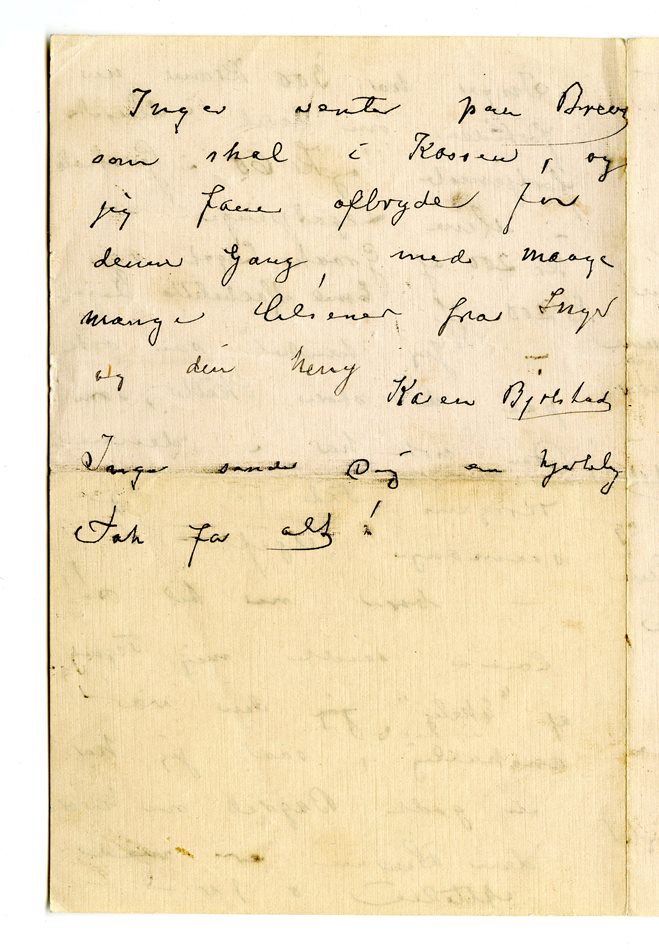 Inger venter paa Brevet
som skal i Kassen, og
jeg faar afbryde for
denne Gang, med mange
mange Hilsener fra Inger
og din heng
Karen Bjølstad
Inger sender Dig en hjertelig
Tak for alt!